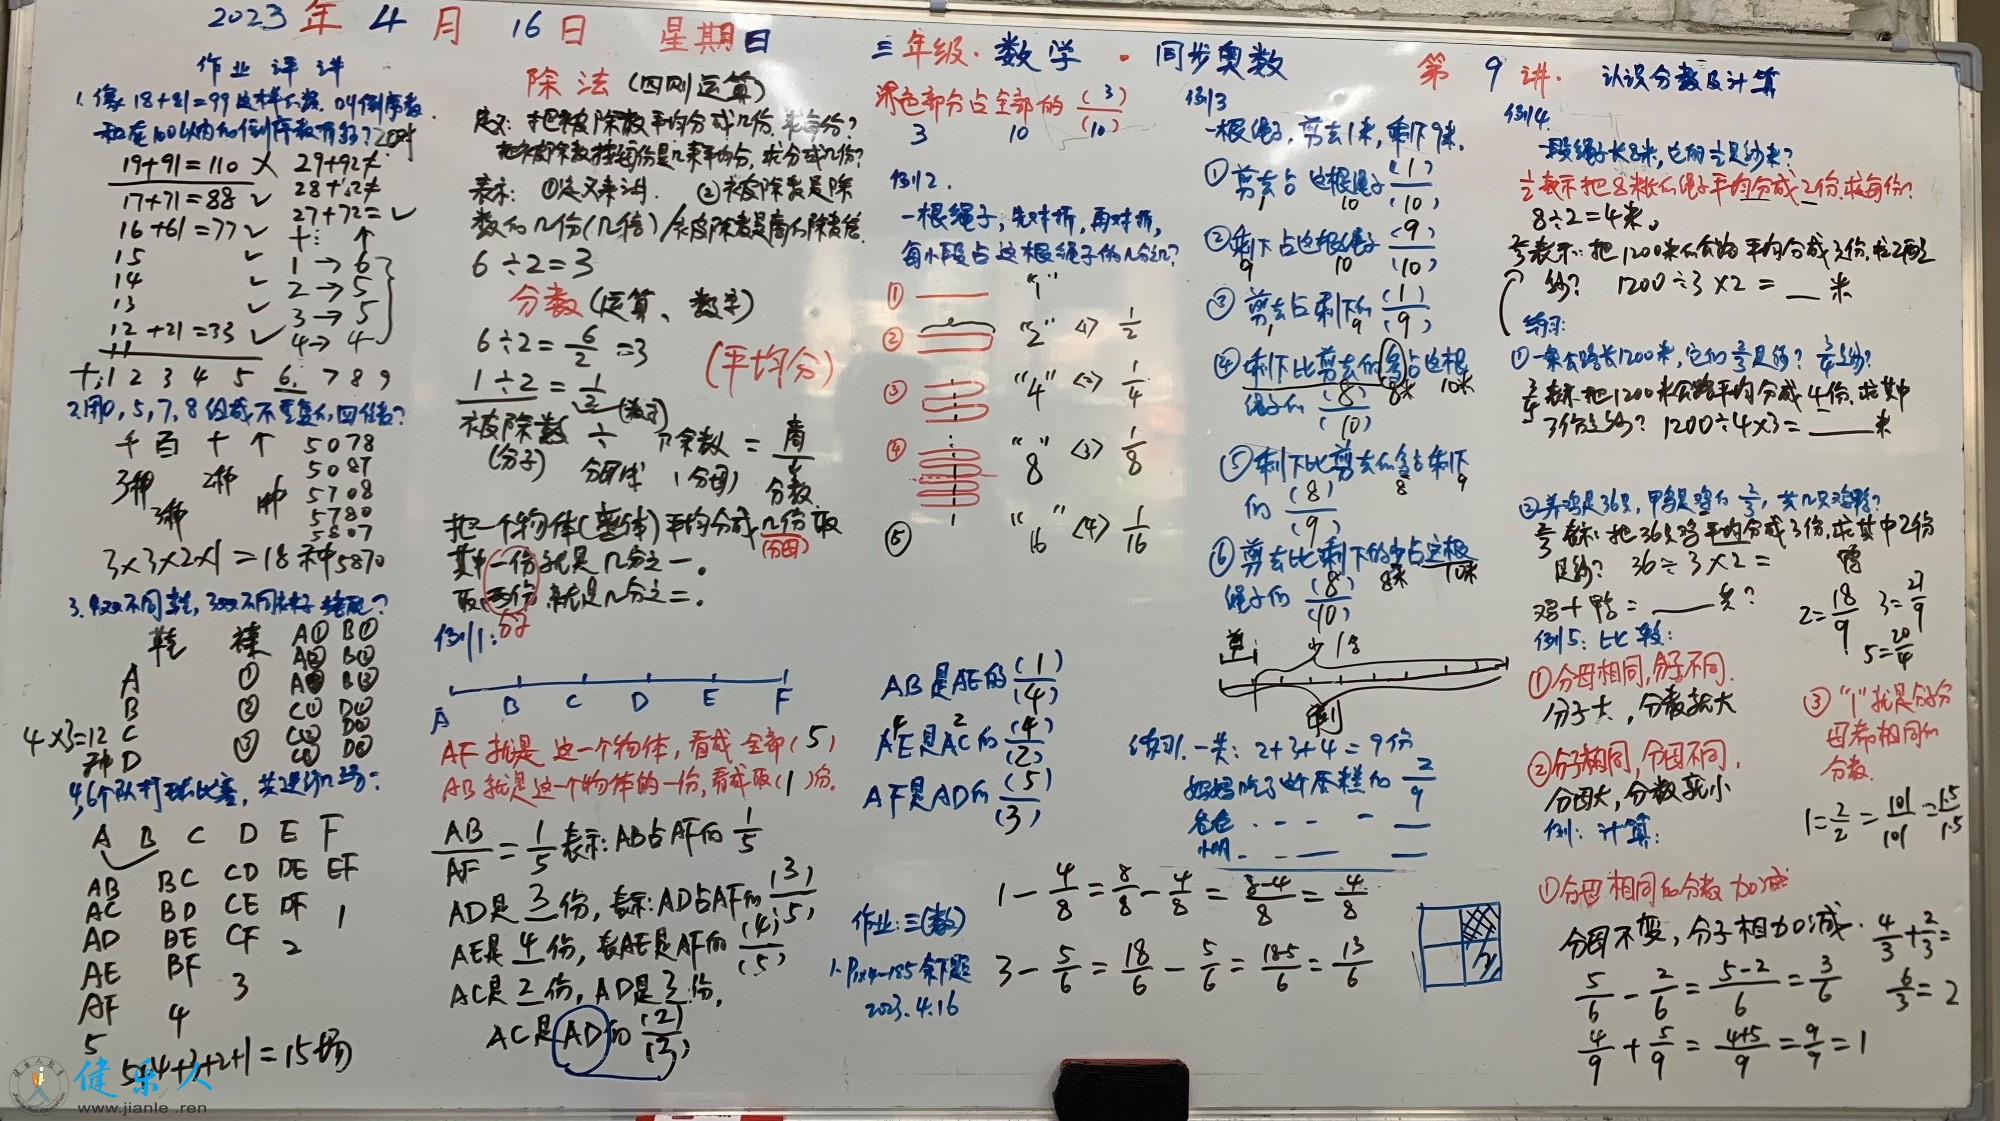 2023年4月16日 星期日
三年级·数学·同步奥数 第9讲. 认识分数及计算
作业评讲
1.像18+81=99这样
19+91=110 ×
17+71=88 ✓
16+61=77 ✓
15 ✓
14 ✓
13 ✓
12+21=33 ✓
11
29+92≠
28+82≠
27+72= ✓
1→6
2→5
3→5
4→4
十:1 2 3 4 5 6. 7 8 9
2.用0,5,7,8组成不重复的四位数?
千 百 十 个
3种 3种 2种 1种
5078
5087
5708
5780
5807
5870
3×3×2×1=18种
鞋 裤
A ①
B ②
C ③
D
4×3=12种
A① B①
A② B②
A③ B③
C① D①
C② D②
C③ D③
4,6个队打球比赛,共进行几场?
A B C D E F
AB BC CD DE EF
AC BD CE DF 1
AD BE CF 2
AE BF 3
AF 4
5
5+4+3+2+1=15场
除法(四则运算)
定义:把被除数平均分成几份,求每份?
表示: ①定义来讲. ②被除数是除
数的几份(几倍)/
6÷2=3
分数(运算、数字)
6÷2=6/2=3
(平均分)
1÷2=1/2
被除数 ÷ 除数 = 商
(分子) (分母) 分数
把一个物体(整体)平均分成几份取
(分母)
其中一份就是几分之一。
取两份,就是几分之二。
分子
例1:
A B C D E F
AF就是这一个物体,看成全部(5)
AB就是这一个物体的一份,看成取(1)份.
AB/AF=1/5 表示:AB占AF的1/5
AD是3份,表示:AD占AF的(3)/(5)
AE是4份,表AE是AF的(4)/(5)
AC是2份,AD是3份,
AC是AD的(2)/(3)
深色部分占全部的(3)/(10)
3 10
例2.
一根绳子,先对折,再对折,
每小段占这根绳子的几分之几?
① "1"
② "2" <1> 1/2
③ "4" <2> 1/4
④ "8" <3> 1/8
⑤ "16" <4> 1/16
AB是AE的(1)/(4)
AE是AC的(4)/(2)
4 2
AF是AD的(5)/(3)
例3
一根绳子,剪去1米,剩下9米.
①剪去占这根绳子(1)/(10)
1 10
②剩下占这根绳子(9)/(10)
9 10
③剪去占剩下的(1)/(9)
1 9
④剩下比剪去的多占这根
8米 10米
绳子的(8)/(10)
⑤剩下比剪去的多占剩下
8 9
的(8)/(9)
⑥剪去比剩下的少占这根
8米 10米
绳子的(8)/(10)
剩
练习1.一共:2+3+4=9份
妈妈吃了这个蛋糕的2/9
爸爸
小明
1-4/8=8/8-4/8=8-4/8=4/8
3-5/6=18/6-5/6=18-5/6=13/6
作业:三(数)
2023.4.16
例4.
一段绳子长8米,它的1/2是多少米?
1/2表示把8米长的绳子平均分成2份,求每份?
8÷2=4米。
2/3表示:把1200米的公路平均分成3份,求2份是
多少? 1200÷3×2=__米
练习:
①一条公路长1200米,它的2/3是多少? 3/4是多少?
3/4表示把1200米公路平均分成4份,求其中
3份是多少? 1200÷4×3=____米
②养鸡是36只,鸭是鸡的2/3,共几只鸡鸭?
2/3表示:把36只鸡平均分成3份,求其中2份
是多少? 36÷3×2= 鸭
鸡+鸭=____只?
2=18/9 3=27/9
5=20/4
例5:比较:
①分母相同,分子不同.
分子大,分数就大
②分子相同,分母不同.
分母大,分数就小
③"1"就是分子分
母都相同的
分数.
1=2/2=101/101=1.5/1.5
例:计算:
①分母相同的分数加减
分母不变,分子相加减.
4/3+2/3=
6/3=2
5/6-2/6=5-2/6=3/6
4/9+5/9=4+5/9=9/9=1
健乐人
www.jianle.ren